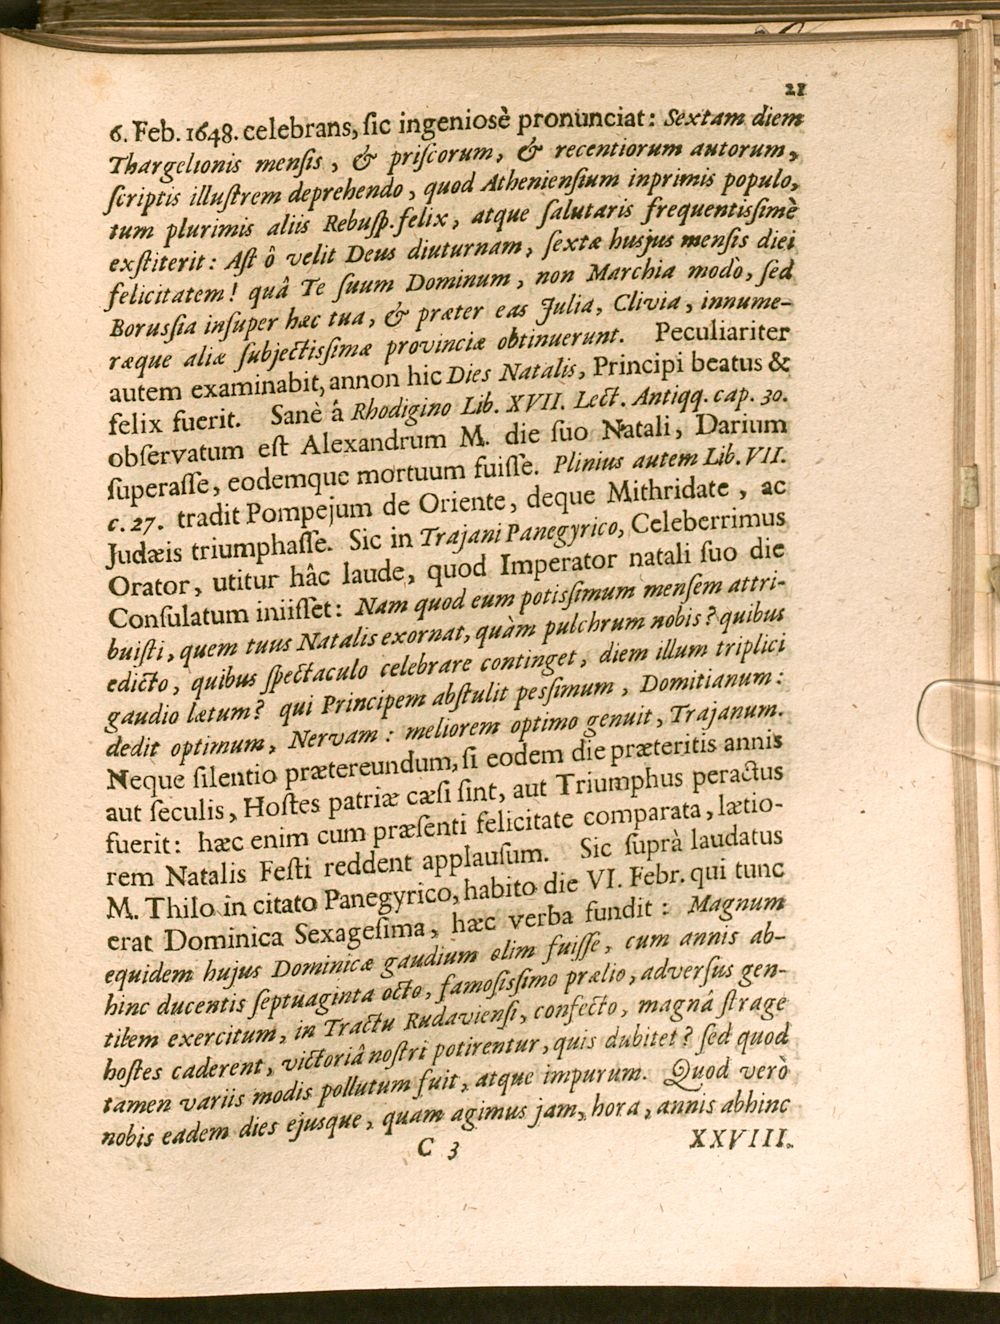 21
6. Feb. 1648. celebrans, ſic ingeniosè pronunciat: Sextam diem
Thargelionis menſis, & priſcorum, & recentiorum autorum,
ſcriptis illuſtrem deprehendo, quod Athenienſium inprimis populo,
tum plurimis aliis Rebuſp. felix, atque ſalutaris frequentiſſimè
exſtiterit: Aſt ô velit Deus diuturnam, ſextæ husjus menſis diei
felicitatem! quâ Te ſuum Dominum, non Marchia modò, ſed
Boruſſia inſuper hæc tua, & præter eas Julia, Clivia, innume-
ræque aliæ ſubjectiſſimæ provinciæ obtinuerunt. Peculiariter
autem examinabit, annon hic Dies Natalis, Principi beatus &
felix fuerit. Sanè â Rhodigino Lib. XVII. Lect. Antiqq. cap. 30.
obſervatum eſt Alexandrum M. die ſuo Natali, Darium
ſuperaſſe, eodemque mortuum fuiſſe. Plinius autem Lib. VII.
c. 27. tradit Pompejum de Oriente, deque Mithridate, ac
Judæis triumphaſſe. Sic in Trajani Panegyrico, Celeberrimus
Orator, utitur hâc laude, quod Imperator natali ſuo die
Conſulatum iniiſſet: Nam quod eum potiſſimum menſem attri-
buiſti, quem tuus Natalis exornat, quàm pulchrum nobis? quibus
edicto, quibus ſpectaculo celebrare continget, diem illum triplici
gaudio lætum? qui Principem abſtulit peſſimum, Domitianum:
dedit optimum, Nervam: meliorem optimo genuit, Trajanum.
Neque ſilentio prætereundum, ſi eodem die præteritis annis
aut ſeculis, Hoſtes patriæ cæſi ſint, aut Triumphus peractus
fuerit: hæc enim cum præſenti felicitate comparata, lætio-
rem Natalis Feſti reddent applauſum. Sic ſuprà laudatus
M. Thilo in citato Panegyrico, habito die VI. Febr. qui tunc
erat Dominica Sexageſima, hæc verba fundit: Magnum
equidem hujus Dominicæ gaudium olim fuiſſe, cum annis ab-
hinc ducentis ſeptuaginta octo, famoſiſſimo prælio, adverſus gen-
tilem exercitum, in Tractu Rudavienſi, confecto, magnâ ſtrage
hoſtes caderent, victoriâ noſtri potirentur, quis dubitet? ſed quod
tamen variis modis pollutum fuit, atque impurum. Quod verò
nobis eadem dies ejusque, quam agimus jam, hora, annis abhinc
C 3 XXVIII.